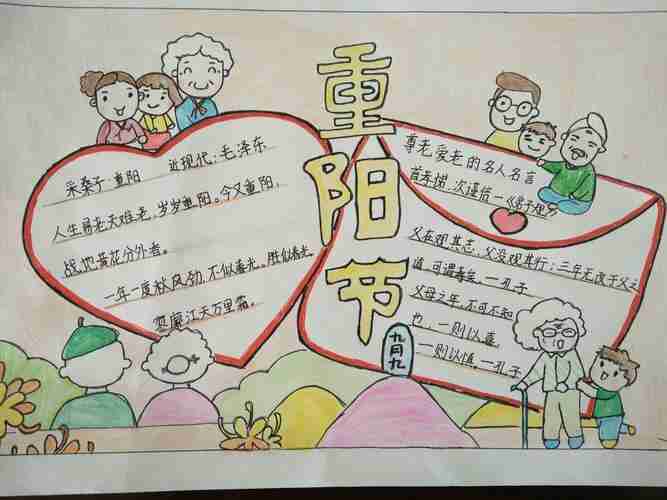 重阳节
采桑子·重阳 近现代:毛泽东
人生易老天难老,岁岁重阳。今又重阳,
战地黄花分外香。
一年一度秋风劲,不似春光。胜似春光,
寥廓江天万里霜。
尊老爱老的名人名言
首孝悌,次谨信—《弟子规》
父在观其志,父没观其行;三年无改于父之
道,可谓孝矣。—孔子
父母之年,不可不知
也,一则以喜,
一则以惧。—孔子
九月九